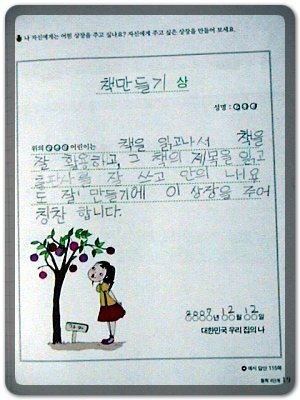 나 자신에게는 어떤 상장을 주고 싶나요? 자신에게 주고 싶은 상장을 만들어 보세요.
책만들기 상
성명 :
위의 어린이는 책을 읽고나서 책을
잘 활용하고, 그 책의 제목을 읽고
출판사를 잘 쓰고 안의 내용
도 잘 만들기에 이 상장을 주어
칭찬 합니다.
년 12월 12일
대한민국 우리 집의 나
예시 답안 115쪽